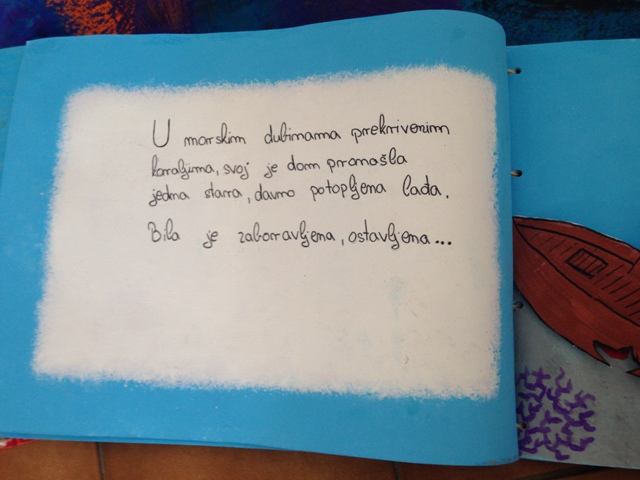 U morskim dubinama prekrivenim
koraljima, svoj je dom pronašla
jedna stara, davno potopljena lađa.
Bila je zaboravljena, ostavljena...